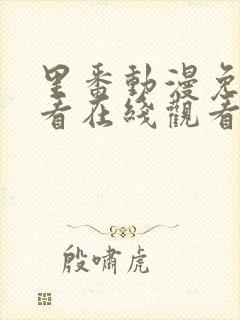 里番動漫免
看在綫觀看
殷嘯虎